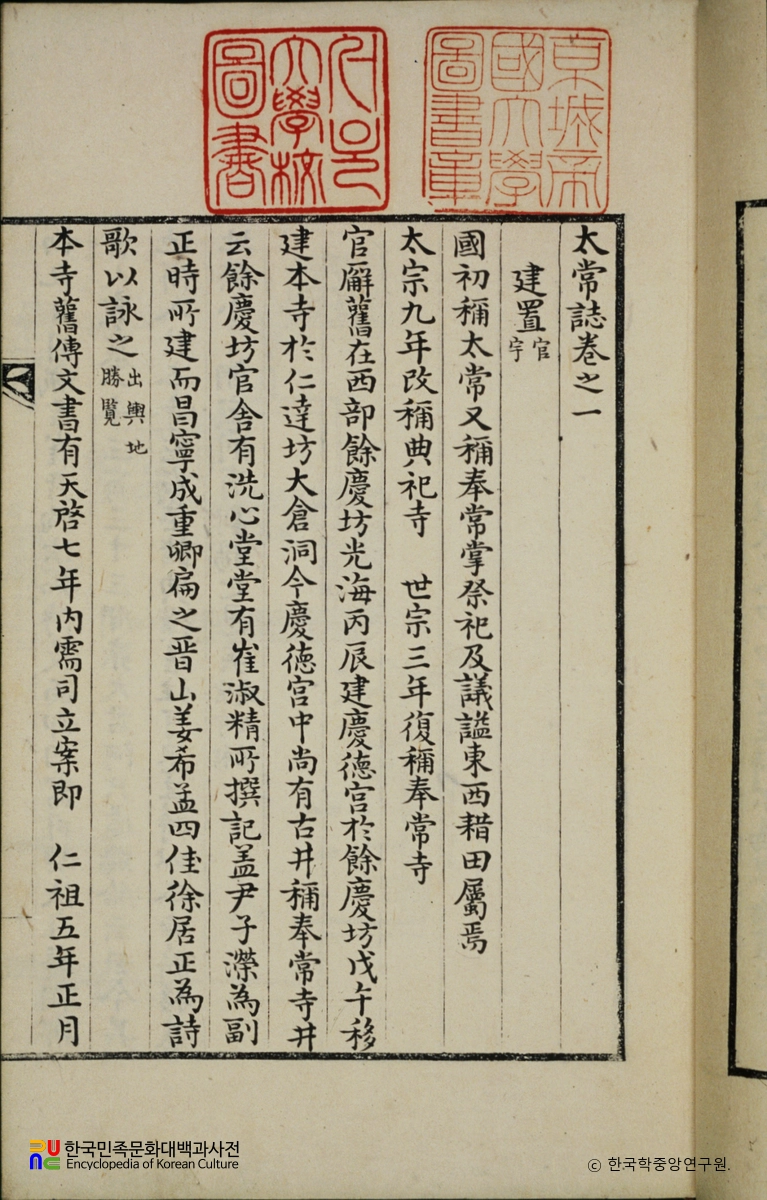 京城帝
國大學
圖書章
서울
大學校
圖書
太常誌卷之一
建置官宇
國初稱太常又稱奉常掌祭祀及議謚東西耤田屬焉
太宗九年改稱典祀寺 世宗三年復稱奉常寺
官廨舊在西部餘慶坊光海丙辰建慶德宮於餘慶坊戊午移
建本寺於仁達坊大倉洞今慶德宮中尚有古井稱奉常寺井
云餘慶坊官舍有洗心堂堂有崔淑精所撰記盖尹子濚為副
正時所建而昌寧成重卿扁之晋山姜希孟四佳徐居正為詩
歌以詠之出輿地勝覽
本寺舊傳文書有天啓七年內需司立案即 仁祖五年正月
한국민족문화대백과사전
Encyclopedia of Korean Culture
ⓒ 한국학중앙연구원.